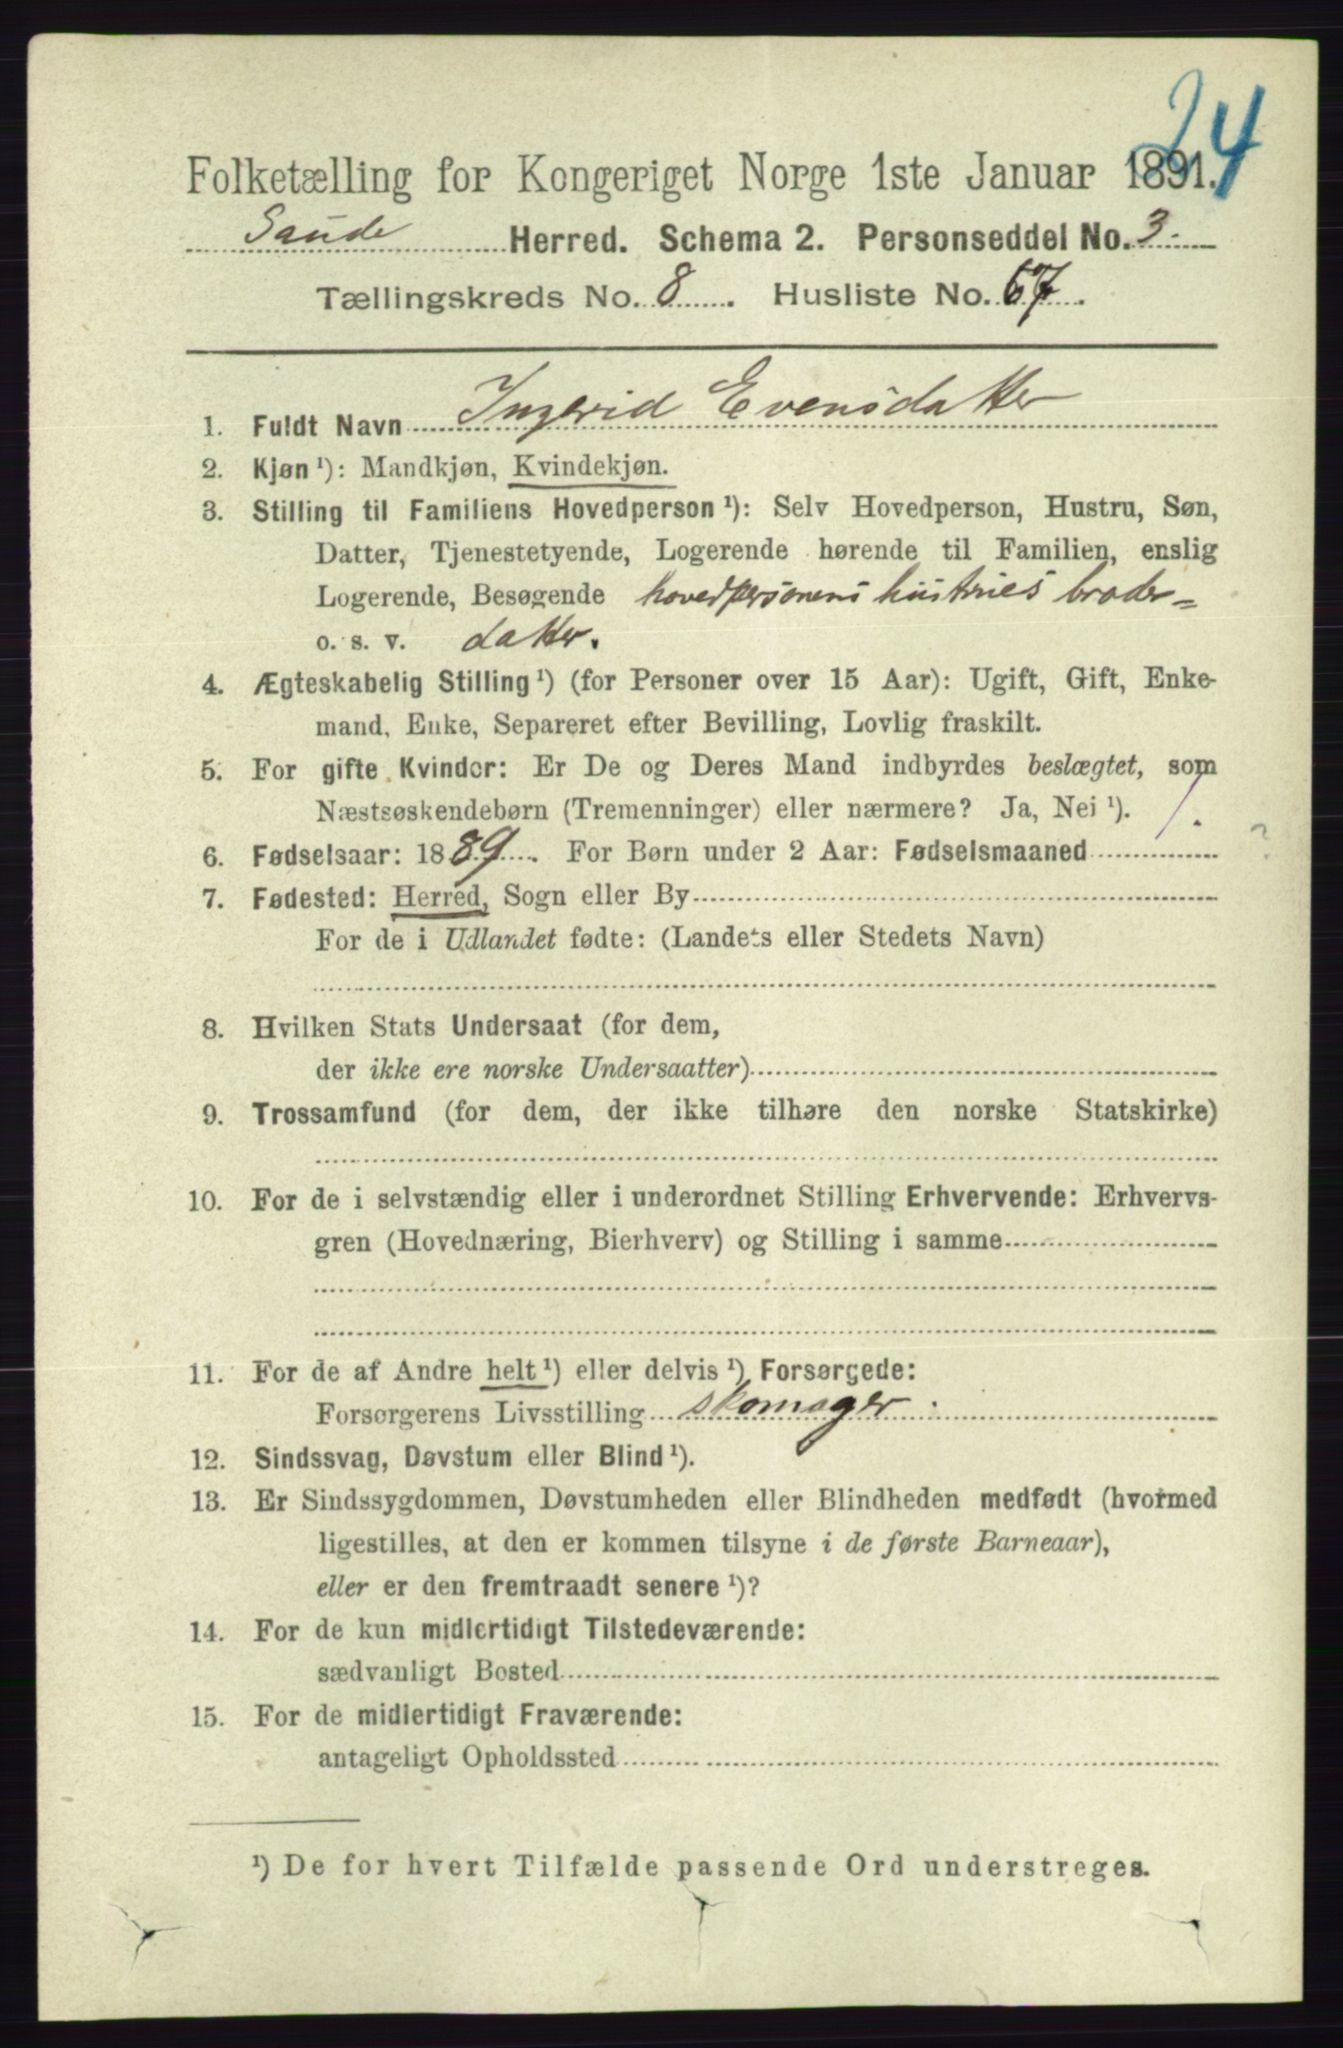 24
Folketælling for Kongeriget Norge 1ste Januar 1891.
Saude Herred. Schema 2. Personseddel No. 3.
Tællingskreds No. 8. Husliste No. 67.
1. Fuldt Navn Ingerid Evensdatter
2. Kjøn ¹): Mandkjøn, Kvindekjøn.
3. Stilling til Familiens Hovedperson ¹): Selv Hovedperson, Hustru, Søn,
Datter, Tjenestetyende, Logerende hørende til Familien, enslig
Logerende, Besøgende hovedpersonens hustrues broder=
o. s. v. datter.
4. Ægteskabelig Stilling ¹) (for Personer over 15 Aar): Ugift, Gift, Enke-
mand, Enke, Separeret efter Bevilling, Lovlig fraskilt.
5. For gifte Kvinder: Er De og Deres Mand indbyrdes beslægtet, som
Næstsøskendebørn (Tremenninger) eller nærmere? Ja, Nei ¹).
6. Fødselsaar: 1889. For Børn under 2 Aar: Fødselsmaaned /. ?
7. Fødested: Herred, Sogn eller By
For de i Udlandet fødte: (Landets eller Stedets Navn)
8. Hvilken Stats Undersaat (for dem,
der ikke ere norske Undersaatter)
9. Trossamfund (for dem, der ikke tilhøre den norske Statskirke)
10. For de i selvstændig eller i underordnet Stilling Erhvervende: Erhvervs-
gren (Hovednæring, Bierhverv) og Stilling i samme
11. For de af Andre helt ¹) eller delvis ¹) Forsørgede:
Forsørgerens Livsstilling skomager.
12. Sindssvag, Døvstum eller Blind ¹).
13. Er Sindssygdommen, Døvstumheden eller Blindheden medfødt (hvormed
ligestilles, at den er kommen tilsyne i de første Barneaar),
eller er den fremtraadt senere ¹)?
14. For de kun midlertidigt Tilstedeværende:
sædvanligt Bosted
15. For de midlertidigt Fraværende:
antageligt Opholdssted
¹) De for hvert Tilfælde passende Ord understreges.